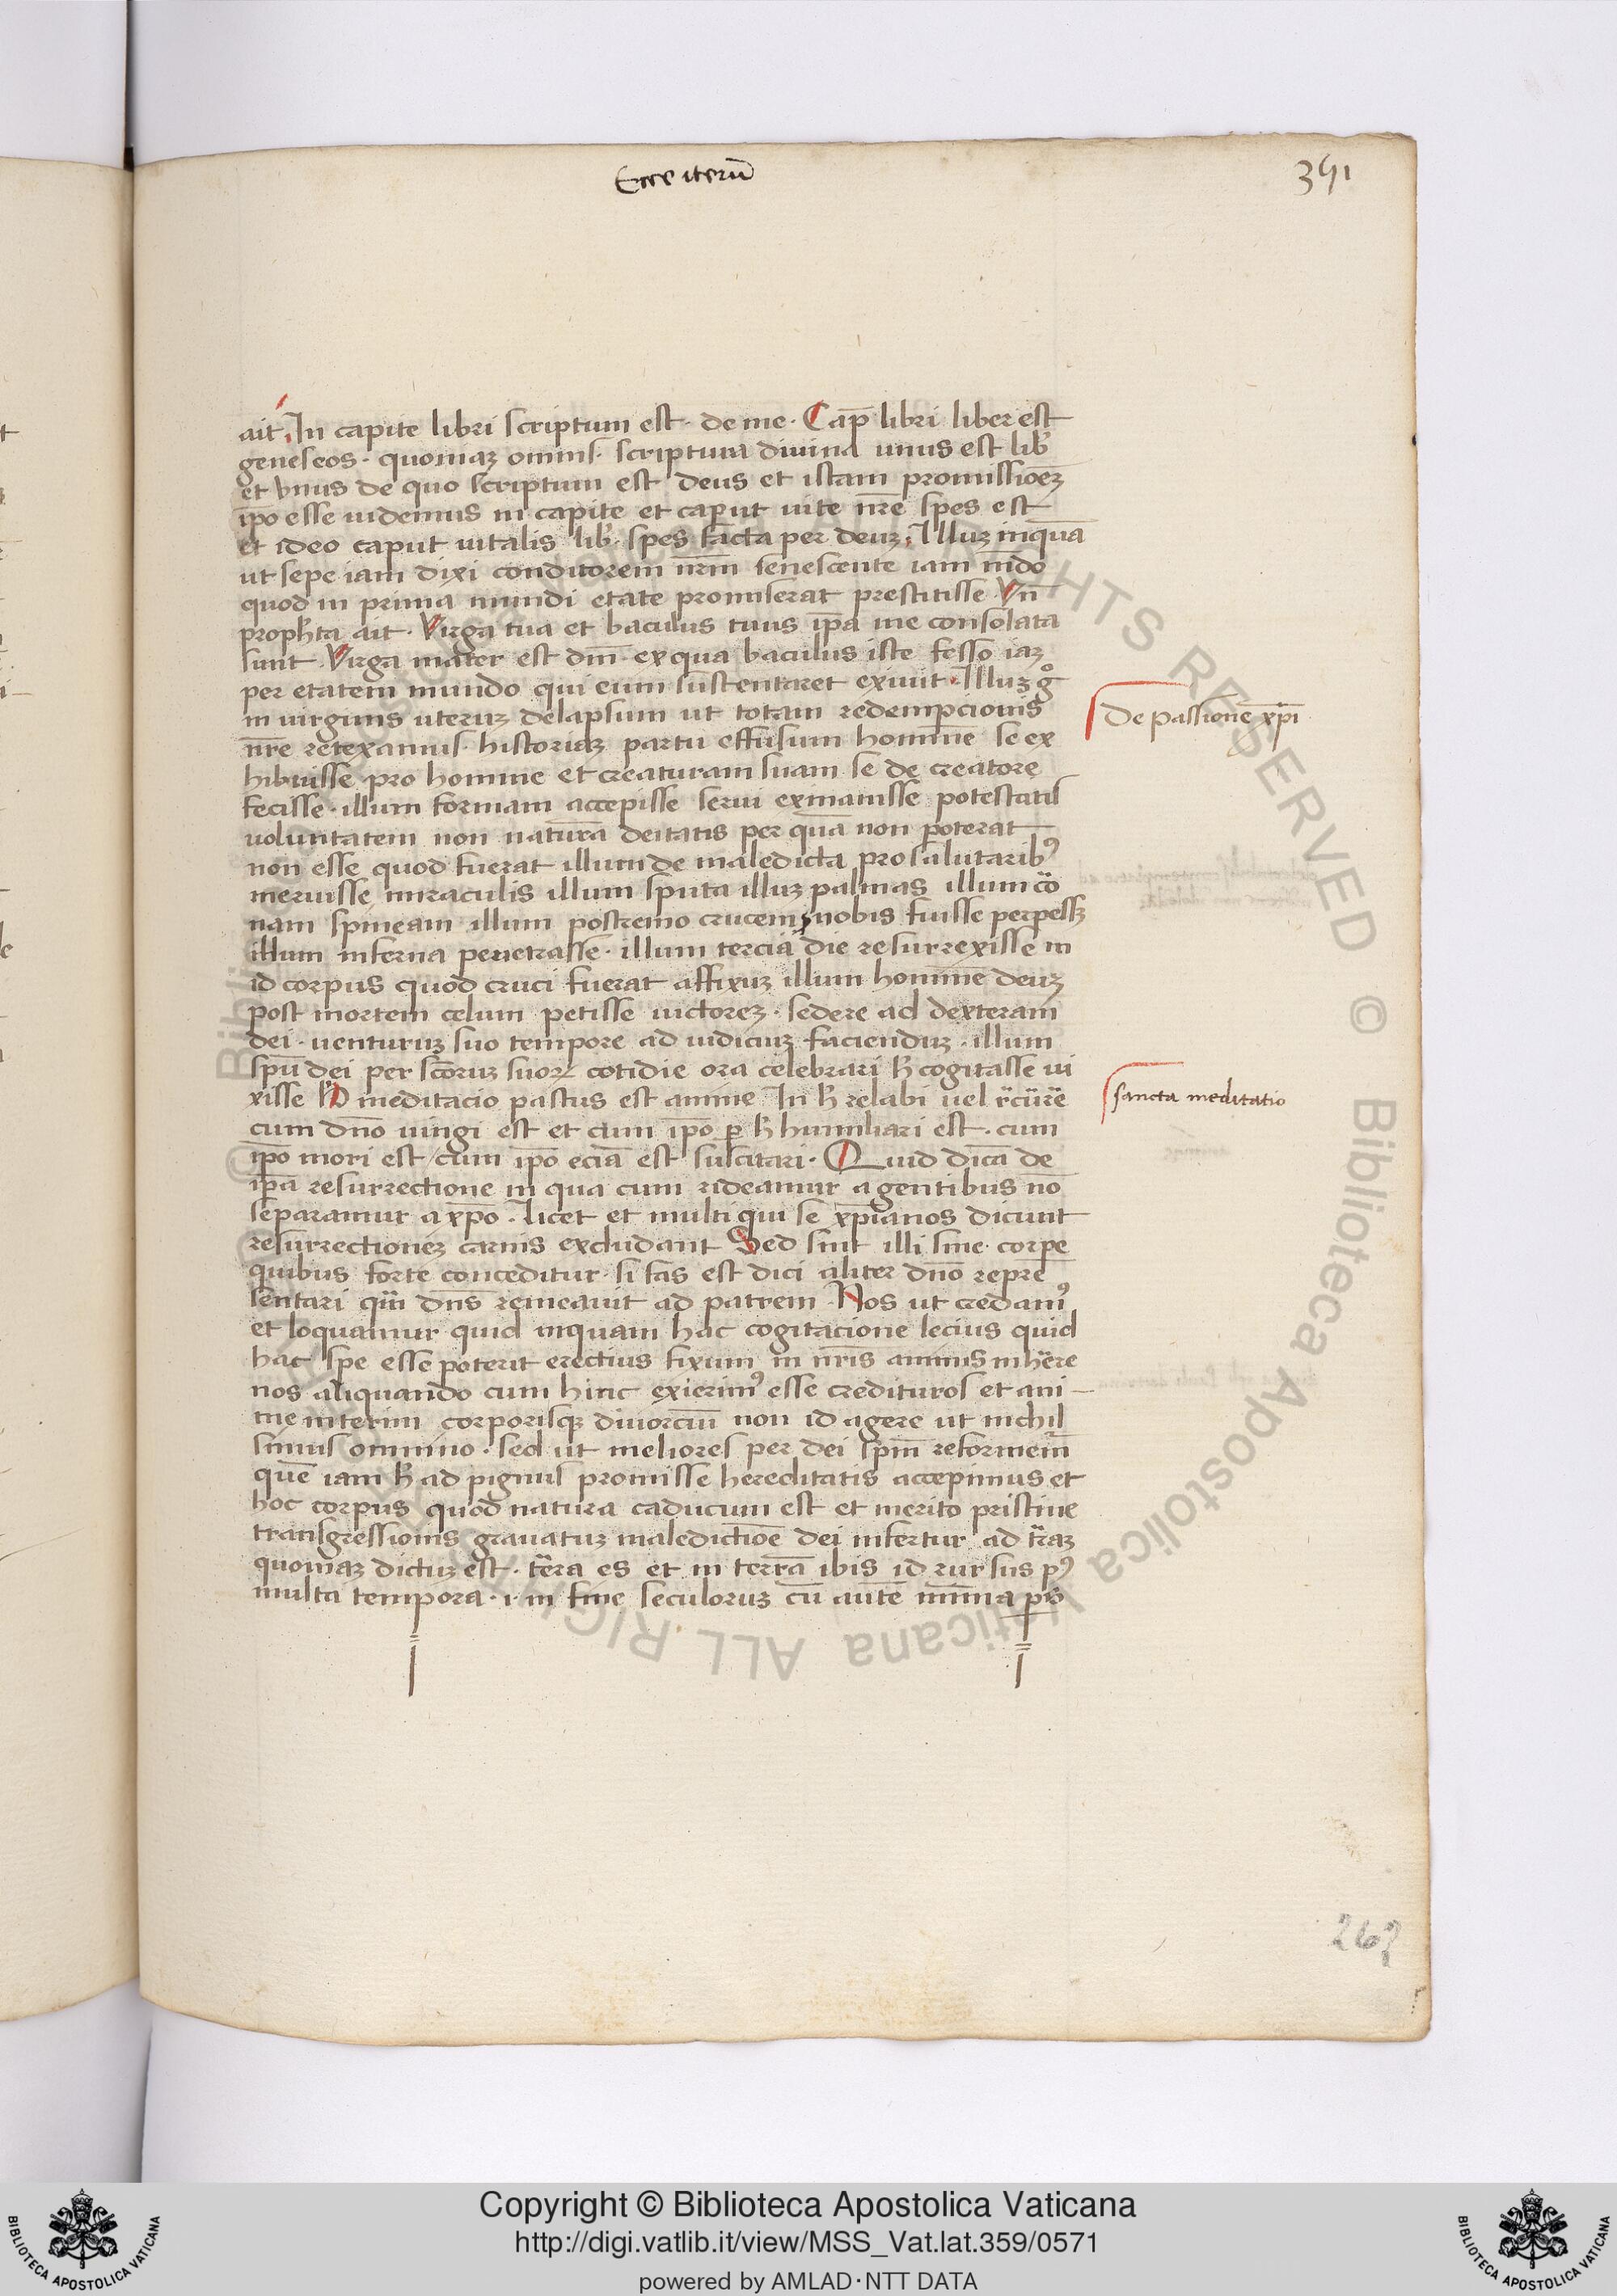 Ecce iterū
391
ait. In capite libri scriptum est. de me. Cap̄ libri liber est
geneseos. quoniaʒ omnis. scriptura diuina unus est lib̾
et vnus de quo scriptum est deus et istam promissioēʒ
ip̄o esse uidemus in capite et caput uite nr̄e spes est
et ideo caput uitalis lib̾. spes facta per deuʒ. Illuʒ inquā
ut sepe iam dixi conditorem nr̄m senescente iam mūdo
quod in prima mundi etate promiserat prestitisse Vn̄
proph̄ta ait. Virga tua et baculus tuus ip̄a me consolata
sunt Virga mater est dn̄i. ex qua baculus iste fesso iaʒ
per etatem mundo qui eum sustentaret exiuit. Illuʒ gͦ
in uirginis uteruʒ delapsum ut totam redempcionis
nr̄e retexamus. historiaʒ partu effusum homine se ex
hibuisse pro homine et creaturam suam se de creatore
fecisse. illum formam accepisse serui exinanisse potestatis
uoluntatem non naturā deitatis per quā non poterat
non esse quod fuerat illum de maledicta pro salutaribꝰ
meruisse miraculis illum sputa illuʒ palmas illum co
nam spineam illum postremo crucem nobis fuisse perpessʒ
illum inferna penetrasse. illum terciā die resurrexisse in
id corpus quod cruci fuerat affixuʒ illum homine deuʒ
post mortem celum petisse uictoreʒ. sedere ad dexteram
dei. uenturuʒ suo tempore ad iudiciuʒ faciendūʒ. illum
sp̄u dei per sc̄oruʒ suoꝝ cotidie ora celebrari h̄ cogitasse ui
xisse meditacio pastus est anime In h̄ relabi uel
cum dn̄o iungi est et cum ip̄o ꝑ h̄ humiliari est. cum
ip̄o mori est / cum ip̄o eciā est suscitari. Quid dicā de
ip̄a resurrectione in qua cum rideamur a gentibus nō
separamur a xp̄o. licet et multi qui se xp̄ianos dicunt
resurrectioneʒ carnis excludant Sed sint illi sine corpe
quibus forte conceditur. si fas est dici aliter dn̄o repre
sentari dn̄s remeauit ad patrem. Nos ut credamꝰ
et loquamur quid inquam hac cogitacione lecius quid
hac spe esse poterit erectius fixum in nr̄is animis inher̄e
nos aliquando cum hinc exierimꝰ esse credituros et ani
me interim corporisqʒ diuorciū non id agere ut nichil
simus omnino. sed ut meliores per dei sp̄m reformem̄
quē iam h̄ ad pignus promisse hereditatis accepimus et
hoc corpus quod natura caducum est et merito pristine
transgressionis grauatuʒ maledictiōe dei infertur ad tr̄aʒ
quoniaʒ dictuʒ est. ter̄a es et in terrā ibis id rursus pꝰ
multa tempora. i. in fine seculoruʒ cū autē
De passione xp̄i
sancta meditatio
262
Copyright © Biblioteca Apostolica Vaticana
http://digi.vatlib.it/view/MSS_Vat.lat.359/0571
powered by AMLAD·NTT DATA